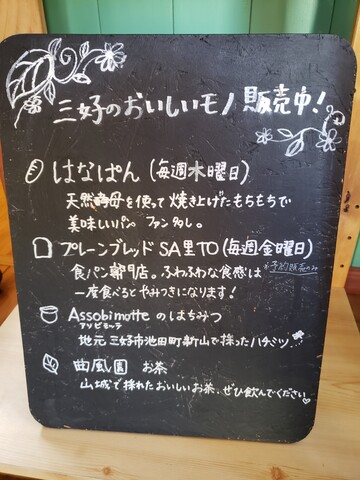 三好のおいしいモノ 販売中!
はなぱん (毎週水曜日)
天然酵母を使って焼き上げたもちもちで
美味しいパン ファン多し。
プレーンブレッド SA里TO (毎週金曜日)
食パン専門店。ふわふわな食感は ※予約販売のみ
一度食べるとやみつきになります!
Assobimotte のはちみつ
アソビモーテ
地元 三好市池田町新山で採ったハチミツ
曲風園 お茶
山城で採れたおいしいお茶、ぜひ飲んでください